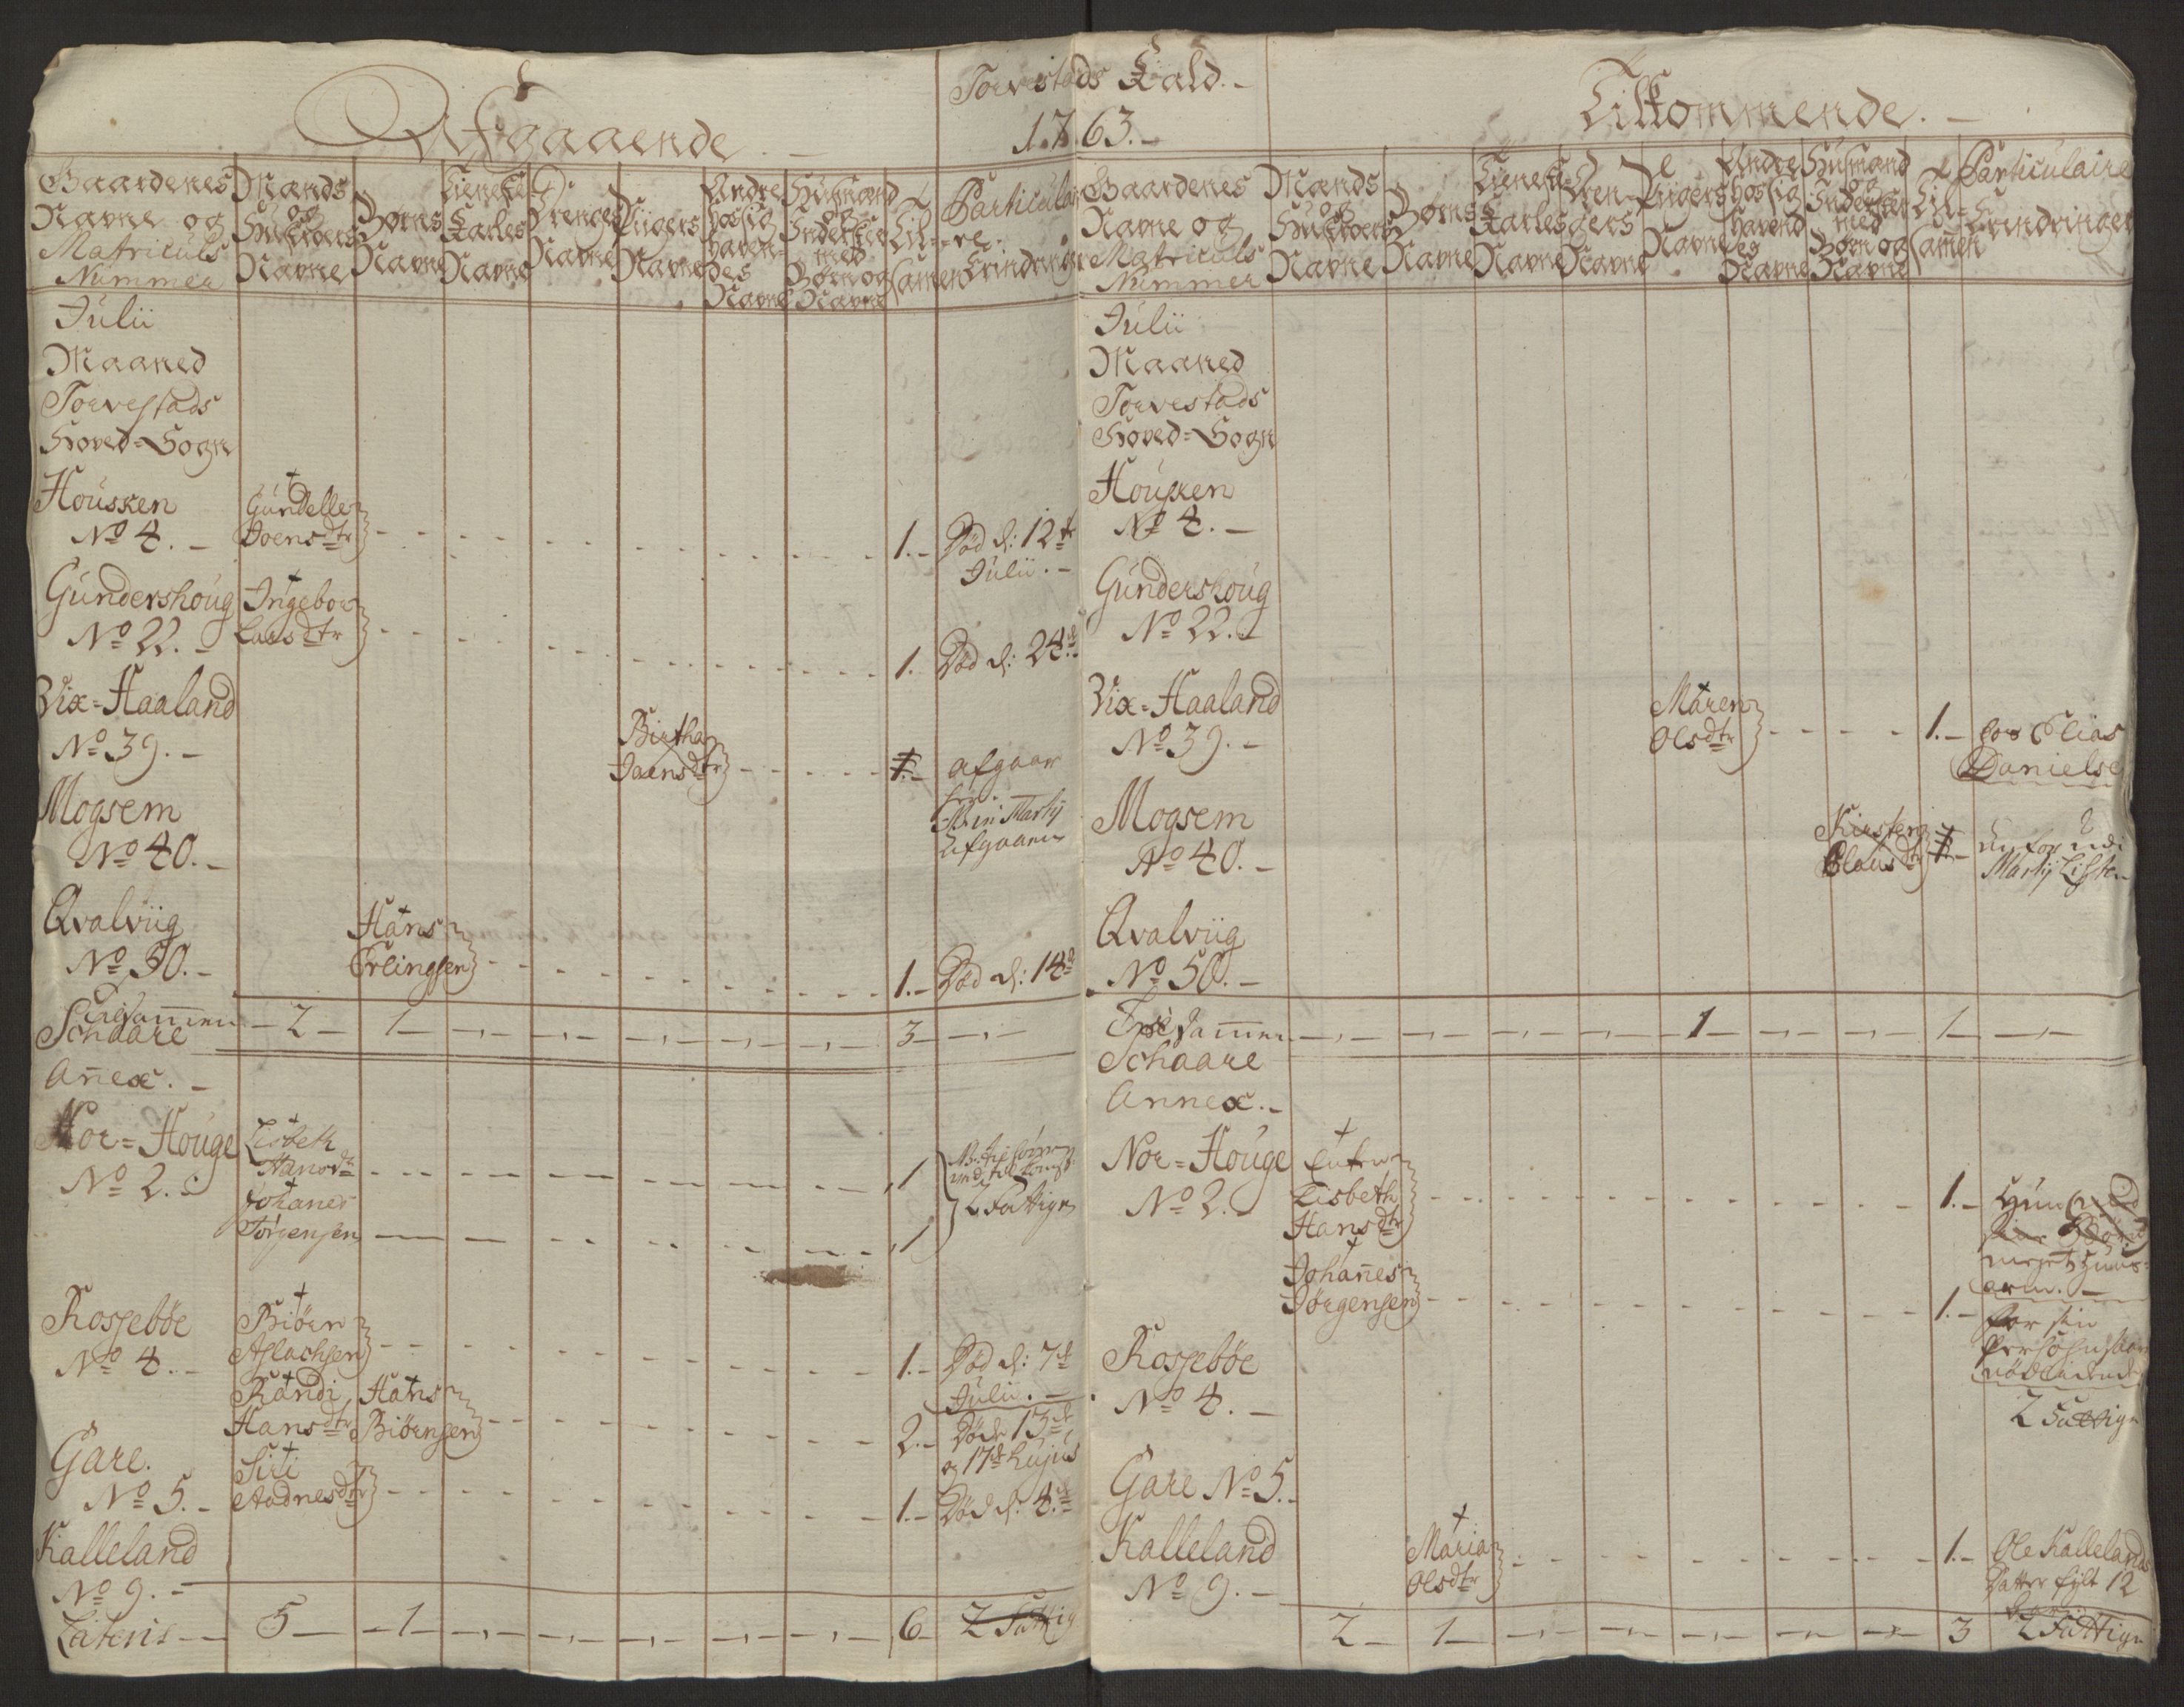 Torvestads Kald. -
1763. -
Afgaaende
Gaardenes
Navne og
Matriculs
Nummer
Mands
og
Hustroers
Navne
Børns
Navne
Tieneste
Karles
Navne
Drenges
Navne
Piigers
Navne
Andre
hos sig
haven-
des
Navne
Husmænd
og
Inderster
med
Børn og
Navne
Til-
samen
Particulai-
re
Erindringer
Julii
Maaned
Torvestads
Hoved-Sogn
Housken
No 4. -
Gundelle
Joensdtr
1. - Død d: 12te
Julii. -
Gundershoug
No 22. -
Ingebor
Larsdtr
1. Død d: 24de
Vix-Haaland
No 39. -
Birtha
Joensdtr
1. - afgaar
Mogsem
No 40. -
Qvalviig
No 50. -
Hans
Erlingsen
1. - Død d: 14de
Tilsammen - 2 - 1 - 3 -
Schaare
Anex. -
Nor-Houge
No 2.
Lisbeth
Hansdtr
1
Johanes
Jørgensen
1
2 Fattige
Rossebøe
No 4. -
Biørn
Aslachsen
1. - Død d: 7de
Julii. -
Randi
Hansdtr
Hans
Biørnsen
2. - Døde 13de
og 17de hujus
Gare.
No 5. -
Siri
Aadnesdtr
1. - Død d: 4de
Kalleland
No 9. -
Lateris - 5 - 1 - 6 - 2 Fattig
Tilkommende. -
Gaardenes
Navne og
Matriculs
Nummer
Mands
og
Hustroers
Navne
Børns
Navne
Tieneste
Karles
Navne
Dren-
gers
Navne
Piigers
Navne
Andre
hos sig
havend
es
Navne
Husmænd
og
Inderster
med
Børn og
Navne
Til-
samen
Particulaire
Erindringer
Julii
Maaned
Torvestads
Hoved-Sogn
Housken
No 4. -
Gundershoug
No 22. -
Vix-Haaland
No 39. -
Maren
Olsdtr
1. - hos Elias
Danielse
Mogsem
No 40. -
Kirsten
Clausdtr
1. -
Martij Listen
Qvalviig
No 50. -
Tilsammen - 1 - 1 -
Schaare
Annex. -
Nor-Houge
No 2. -
Enken
Lisbeth
Hansdtr
1. - Hun
meget huus-
arm. -
Johanes
Jørgensen
1. - for sin
2 Fattige
Rossebøe
No 4. -
Gare No 5. -
Kalleland
No 9. -
Maria
Olsdtr
1. - Ole Kallelands
Datter fylt 12
2 - 1 - 3 2 Fattige